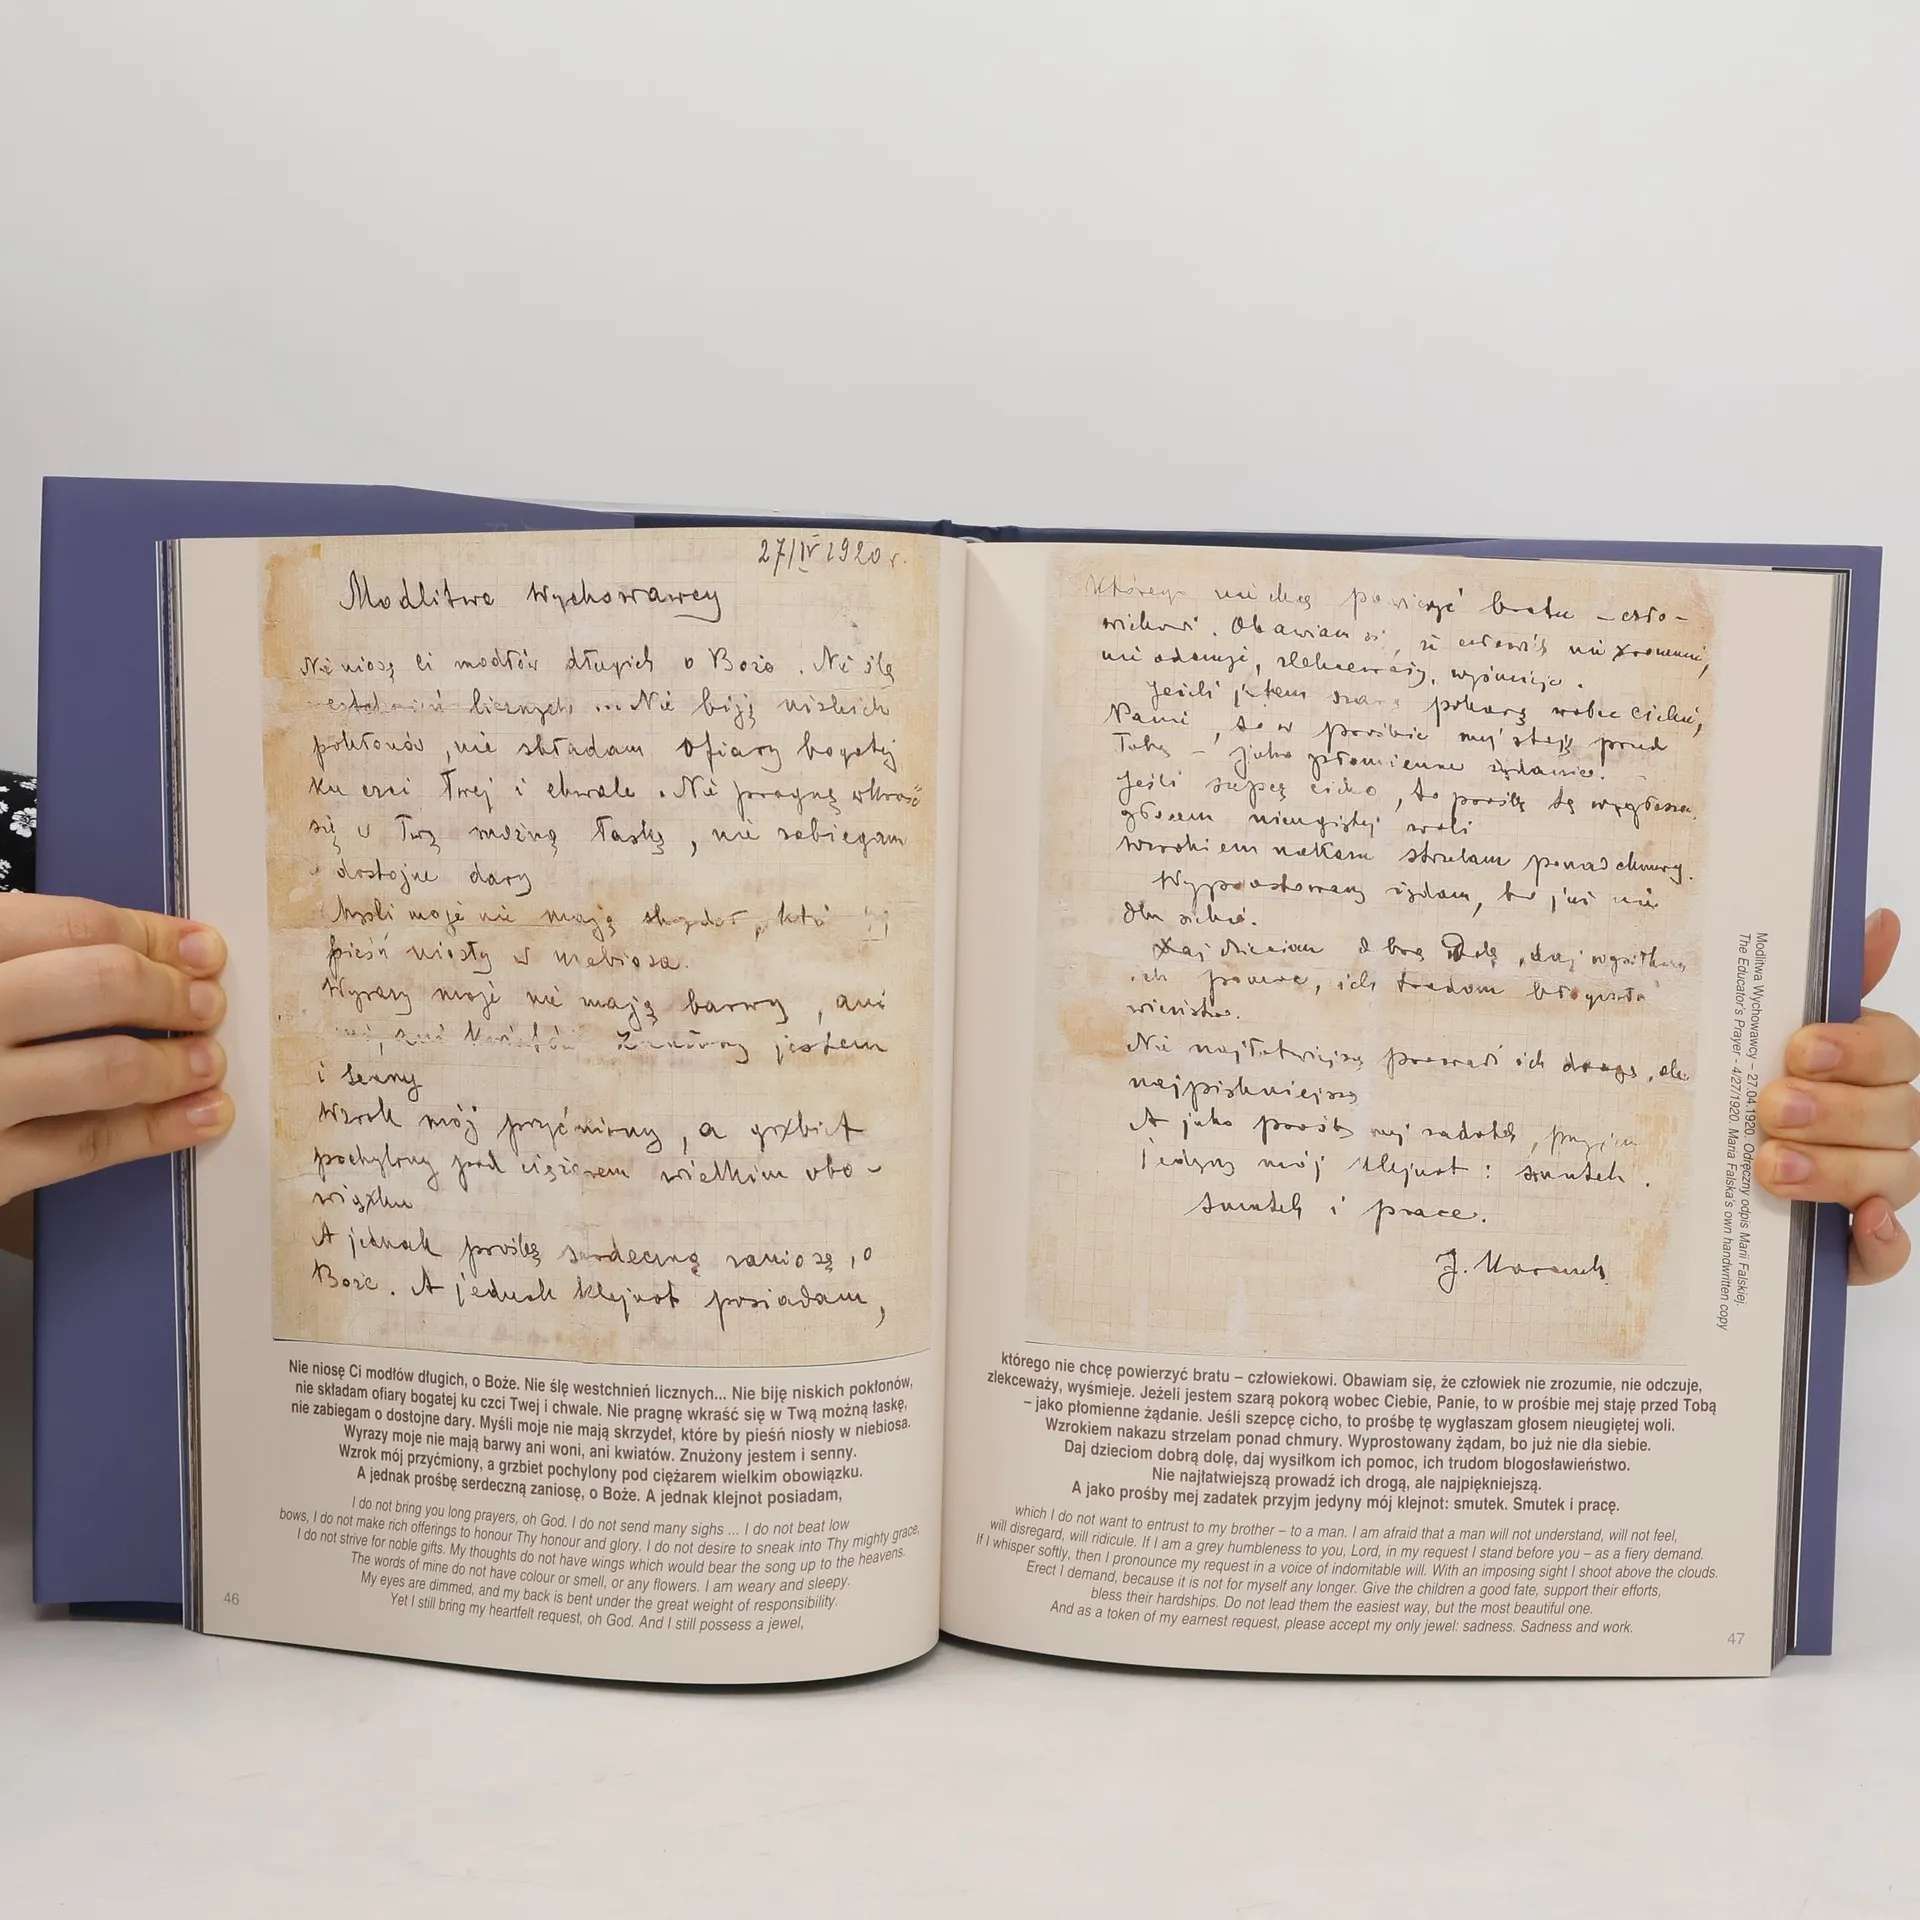 27/IV 1920 r.
Modlitwa Wychowawcy
Nie niosę Ci modłów długich o Boże. Nie ślę
westchnień licznych ... Nie biję niskich
pokłonów, nie składam ofiary bogatej
ku czci Twej i chwale. Nie pragnę wkraść
się w Twą możną łaskę, nie zabiegam
o dostojne dary
Myśli moje nie mają skrzydeł, któ
pieśń niosły w niebiosa.
Wyrazy moje nie mają barwy, ani
ani kwiatów Znużony jestem
i senny
Wzrok mój przyćmiony, a grzbiet
pochylony pod ciężarem wielkim obo-
wiązku
A jednak prośbę serdeczną zaniosę, o
Boże. A jednak klejnot posiadam,
Nie niosę Ci modłów długich, o Boże. Nie ślę westchnień licznych... Nie biję niskich pokłonów,
nie składam ofiary bogatej ku czci Twej i chwale. Nie pragnę wkraść się w Twą możną łaskę,
nie zabiegam o dostojne dary. Myśli moje nie mają skrzydeł, które by pieśń niosły w niebiosa.
Wyrazy moje nie mają barwy ani woni, ani kwiatów. Znużony jestem i senny.
Wzrok mój przyćmiony, a grzbiet pochylony pod ciężarem wielkim obowiązku.
A jednak prośbę serdeczną zaniosę, o Boże. A jednak klejnot posiadam,
I do not bring you long prayers, oh God. I do not send many sighs ... I do not beat low
bows, I do not make rich offerings to honour Thy honour and glory. I do not desire to sneak into Thy mighty grace,
I do not strive for noble gifts. My thoughts do not have wings which would bear the song up to the heavens.
The words of mine do not have colour or smell, or any flowers. I am weary and sleepy.
My eyes are dimmed, and my back is bent under the great weight of responsibility.
Yet I still bring my heartfelt request, oh God. And I still possess a jewel,
46
Którego nie chcę powierzyć bratu – czło-
wiekowi. Obawiam się, że człowiek nie zrozumie,
nie odczuje, zlekceważy, wyśmieje.
Jeżeli jestem szarą pokorą wobec Ciebie,
Panie, to w prośbie mej staję przed
Tobą – jako płomienne żądanie.
Jeśli szepcę cicho, to prośbę tę wygłaszam
głosem nieugiętej woli
Wzrokiem nakazu strzelam ponad chmury.
Wyprostowany żądam, bo już nie
dla siebie.
Daj dzieciom dobrą Dolę, daj wysiłkom
ich pomoc, ich trudom błogosła
wieństwo.
Nie najłatwiejszą prowadź ich drogą, ale
najpiękniejszą
A jako prośby mej zadatek, przyjm
jedyny mój klejnot: smutek.
Smutek i pracę.
J. Korczak
którego nie chcę powierzyć bratu – człowiekowi. Obawiam się, że człowiek nie zrozumie, nie odczuje,
zlekceważy, wyśmieje. Jeżeli jestem szarą pokorą wobec Ciebie, Panie, to w prośbie mej staję przed Tobą
– jako płomienne żądanie. Jeśli szepcę cicho, to prośbę tę wygłaszam głosem nieugiętej woli.
Wzrokiem nakazu strzelam ponad chmury. Wyprostowany żądam, bo już nie dla siebie.
Daj dzieciom dobrą dolę, daj wysiłkom ich pomoc, ich trudom błogosławieństwo.
Nie najłatwiejszą prowadź ich drogą, ale najpiękniejszą.
A jako prośby mej zadatek przyjm jedyny mój klejnot: smutek. Smutek i pracę.
which I do not want to entrust to my brother – to a man. I am afraid that a man will not understand, will not feel,
will disregard, will ridicule. If I am a grey humbleness to you, Lord, in my request I stand before you – as a fiery demand.
If I whisper softly, then I pronounce my request in a voice of indomitable will. With an imposing sight I shoot above the clouds.
Erect I demand, because it is not for myself any longer. Give the children a good fate, support their efforts,
bless their hardships. Do not lead them the easiest way, but the most beautiful one.
And as a token of my earnest request, please accept my only jewel: sadness. Sadness and work.
47
Modlitwa Wychowawcy – 27.04.1920. Odręczny odpis Marii Falskiej.
The Educator's Prayer - 4/27/1920. Maria Falska's own handwritten copy